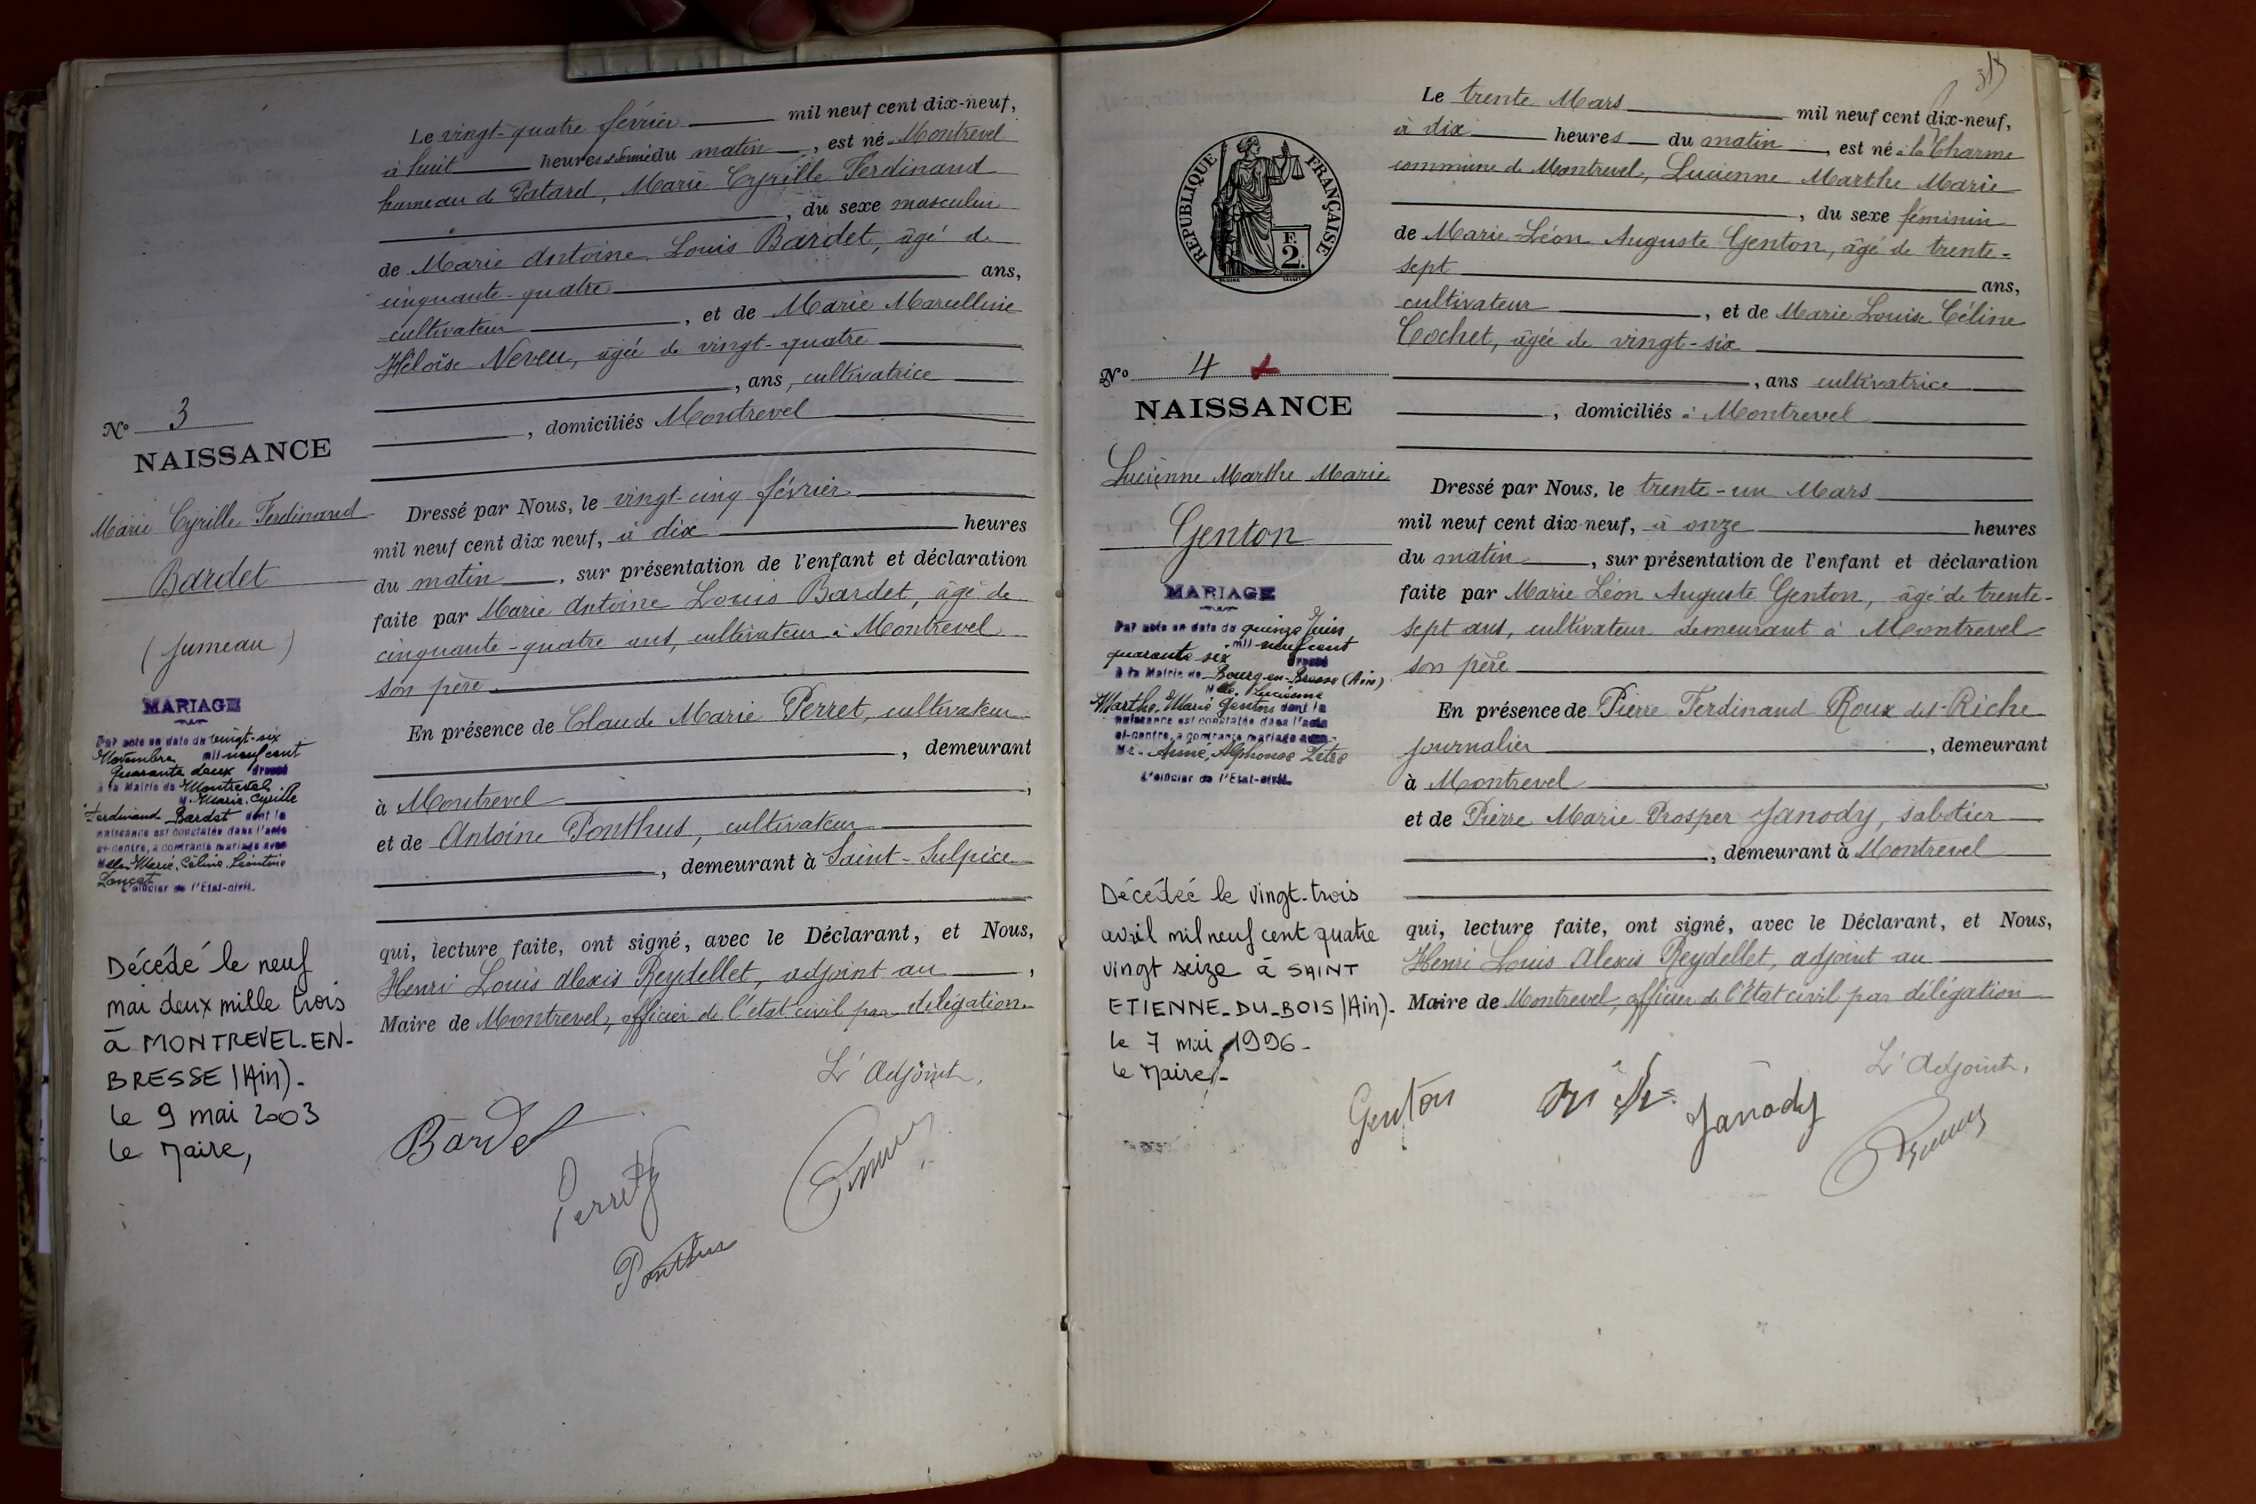 N° 3
NAISSANCE
Marie Cyrille Ferdinand
Bardet
(jumeau)
MARIAGE
Par acte en date du vingt-six
Novembre mil neuf cent
quarante deux dressé
à la Mairie de Montrevel
M. Marie, Cyrille
Ferdinand Bardet dont la
naissance est constatée dans l'acte
ci-contre, a contracté mariage avec
Melle Marie, Céline, Léontine
L'officier de l'Etat-civil.
Décédé le neuf
mai deux mille trois
à MONTREVEL-EN-
BRESSE (Ain)-
le 9 mai 2003
le Maire,
Le vingt-quatre février mil neuf cent dix-neuf,
à huit heures et demie du matin, est né à Montrevel
hameau de Patard, Marie Cyrille Ferdinand
, du sexe masculin
de Marie Antoine Louis Bardet, âgé de
cinquante-quatre ans,
cultivateur, et de Marie Marcelline
Héloïse Neveu, âgée de vingt-quatre
, ans, cultivatrice
, domiciliés Montrevel
Dressé par Nous, le vingt-cinq février
mil neuf cent dix neuf, à dix heures
du matin, sur présentation de l'enfant et déclaration
faite par Marie Antoine Louis Bardet, âgé de
cinquante-quatre ans, cultivateur à Montrevel
son père
En présence de Claude Marie Perret, cultivateur
, demeurant
à Montrevel,
et de Antoine Ponthus, cultivateur
, demeurant à Saint-Sulpice
qui, lecture faite, ont signé, avec le Déclarant, et Nous,
Henri Louis Alexis Reydellet, adjoint au,
Maire de Montrevel, officier de l'état civil par délégation
L'Adjoint,
Bardet
Perret
Ponthus
REPUBLIQUE FRANÇAISE
F.
2.
N° 4
NAISSANCE
Lucienne Marthe Marie
Genton
MARIAGE
Par acte en date du quinze Juin
mil neuf cent
quarante six dressé
à la Mairie de Bourg-en-Bresse (Ain)
Melle. Lucienne
Marthe, Marie Genton dont la
naissance est constatée dans l'acte
ci-contre, a contracté mariage avec
M. Aimé, Alphonse
L'officier de l'Etat-civil.
Décédée le vingt-trois
avril mil neuf cent quatre
vingt seize à SAINT
ETIENNE-DU-BOIS (Ain)-
le 7 mai 1996-
le Maire-
Le trente Mars mil neuf cent dix-neuf,
à dix heures du matin, est né à la Charme
commune de Montrevel, Lucienne Marthe Marie
, du sexe féminin
de Marie Léon Auguste Genton, âgé de trente-
sept ans,
cultivateur, et de Marie Louise Céline
Cochet, âgée de vingt-six
, ans cultivatrice
, domiciliés à Montrevel
Dressé par Nous, le trente-un Mars
mil neuf cent dix-neuf, à onze heures
du matin, sur présentation de l'enfant et déclaration
faite par Marie Léon Auguste Genton, âgé de trente-
sept ans, cultivateur demeurant à Montrevel
son père
En présence de Pierre Ferdinand Roux dit-Riche
journalier, demeurant
à Montrevel,
et de Pierre Marie Prosper Janody, sabotier
, demeurant à Montrevel
qui, lecture faite, ont signé, avec le Déclarant, et Nous,
Henri Louis Alexis Reydellet, adjoint au
Maire de Montrevel, officier de l'état civil par délégation
L'Adjoint,
Genton
Janody